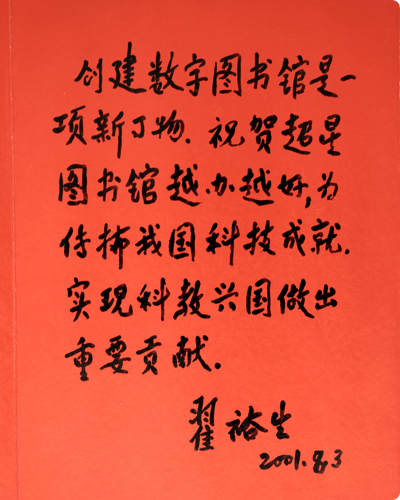 创建数字图书馆是一
项新事物.祝贺超星
图书馆越办越好,为
传播我国科技成就.
实现科教兴国做出
重要贡献.
翟裕生
2001.8.3